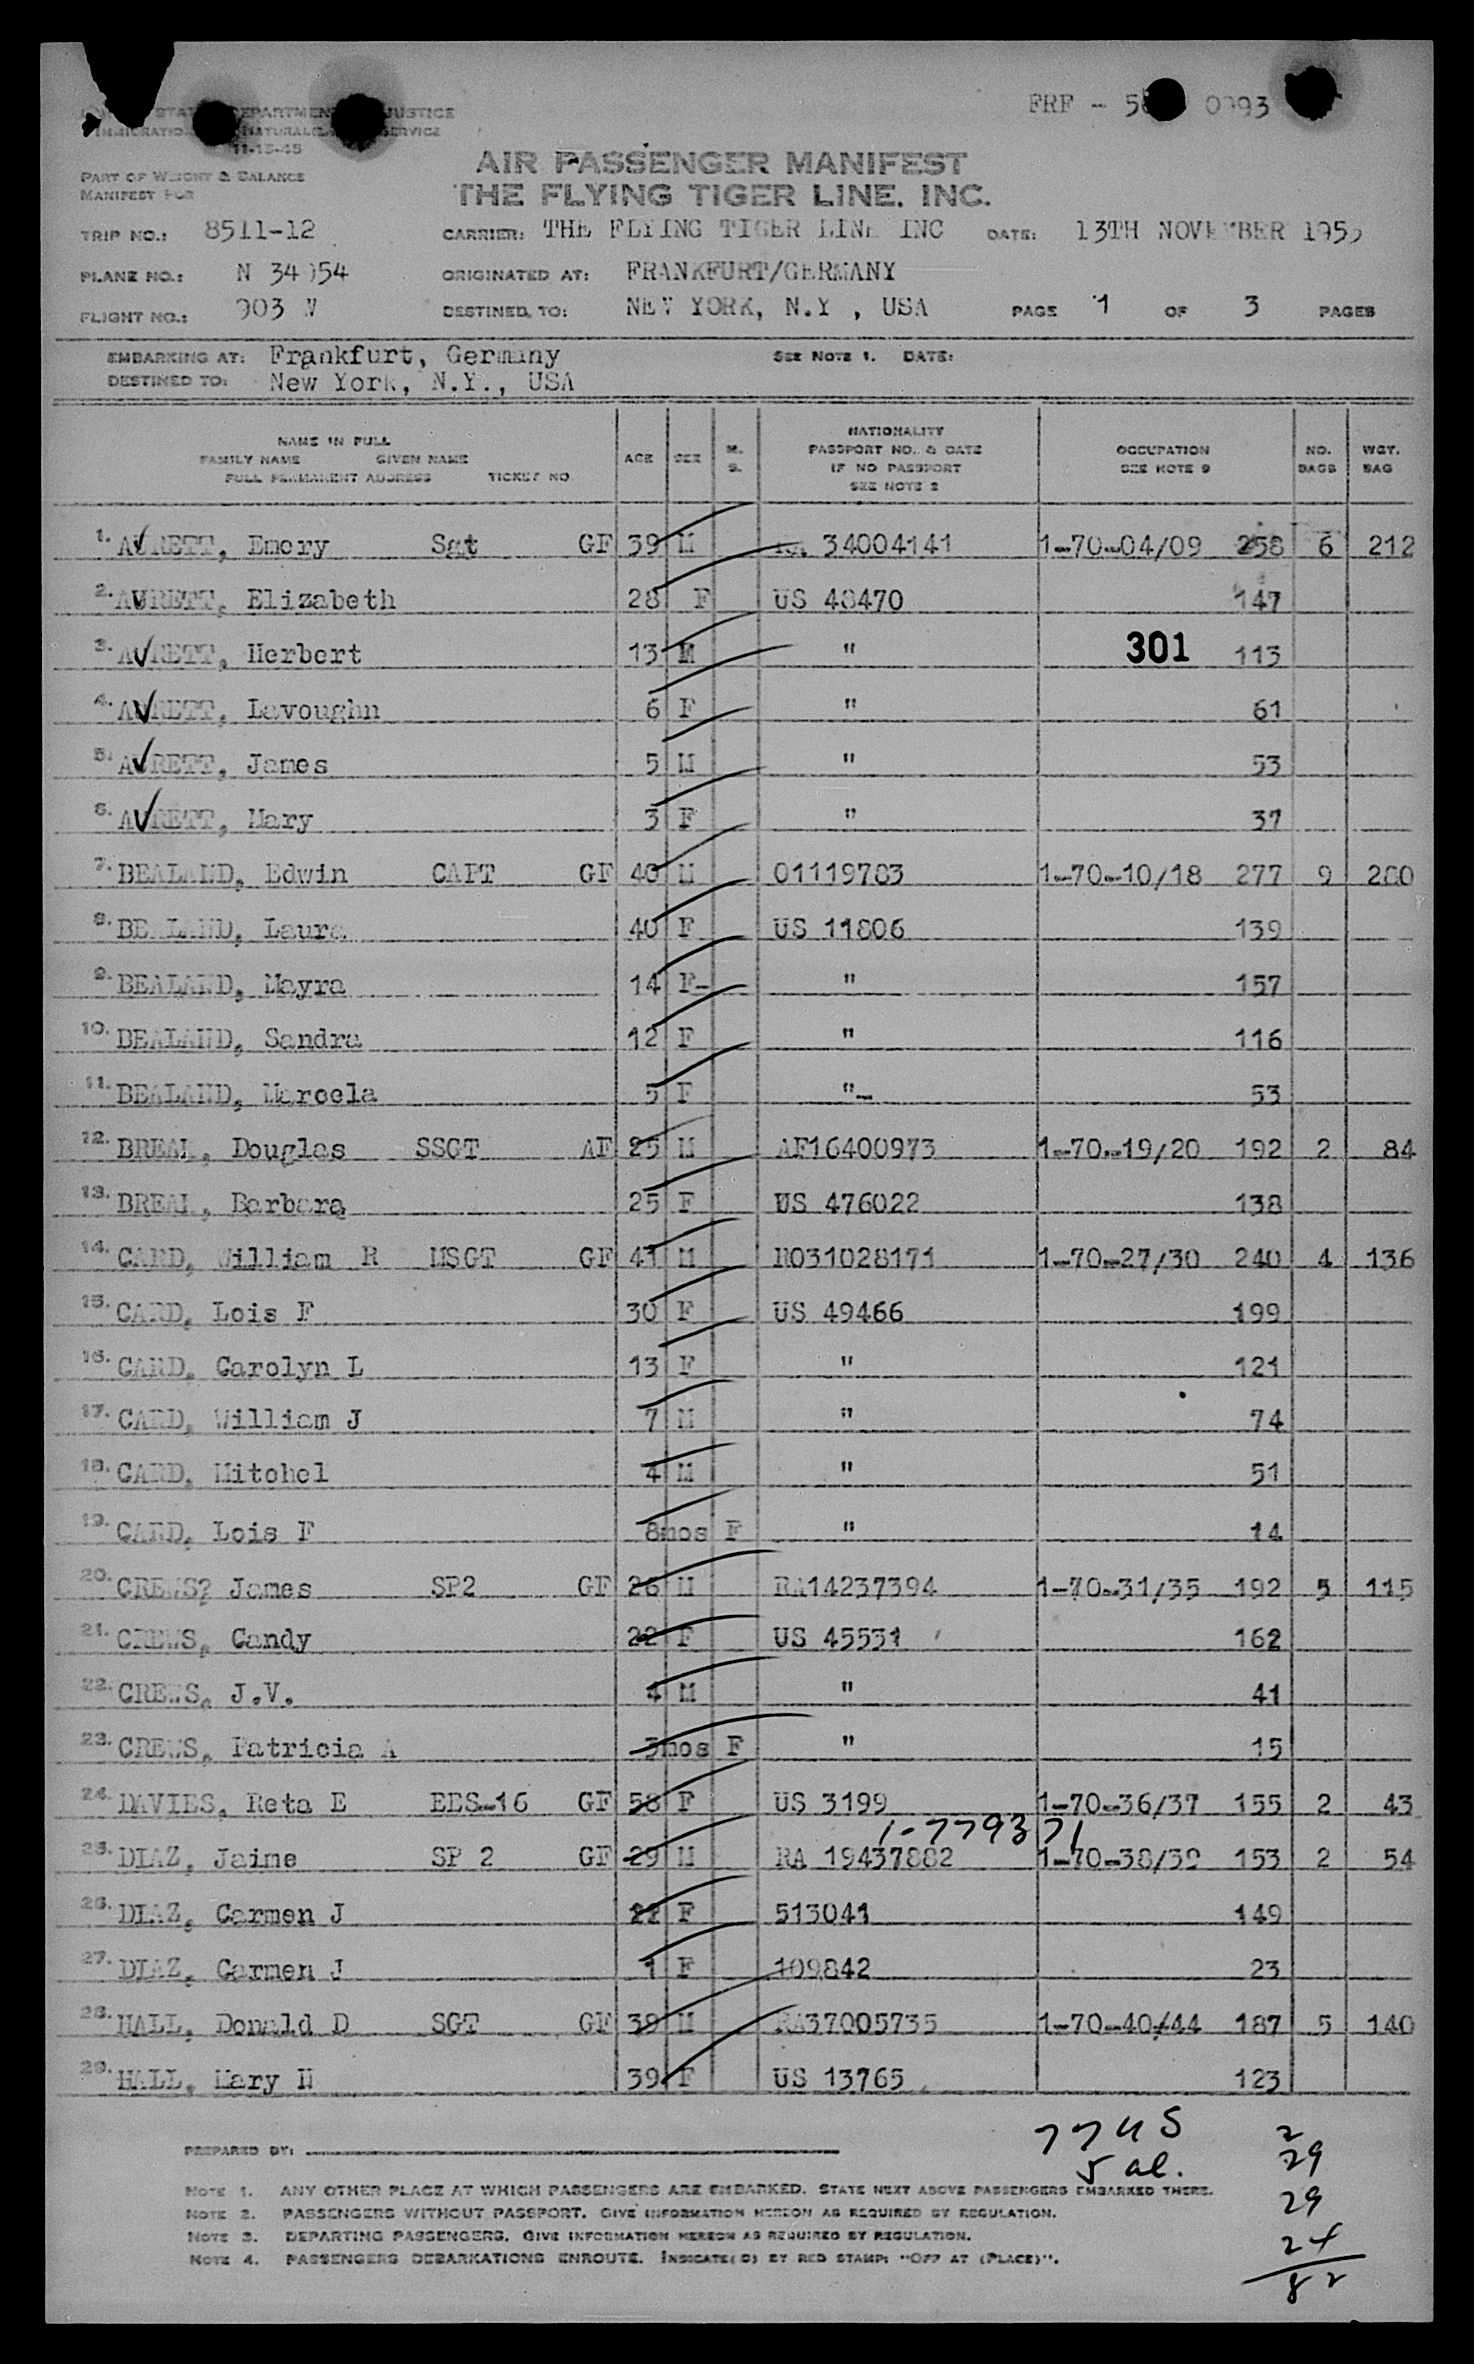 STATES DEPARTMENT JUSTICE
IMMIGRATION NATURALIZATION SERVICE
11-15-45
FRF - 0993
PART OF WEIGHT & BALANCE
MANIFEST FOR
AIR PASSENGER MANIFEST
THE FLYING TIGER LINE. INC.
TRIP NO.: 8511-12 CARRIER: THE FLYING TIGER LINE INC DATE: 13TH NOVEMBER 195
PLANE NO.: N 34954 ORIGINATED AT: FRANKFURT/GERMANY
FLIGHT NO.: 903 W DESTINED TO: NEW YORK, N.Y , USA PAGE 1 OF 3 PAGES
EMBARKING AT: Frankfurt, Germany SEE NOTE 1. DATE:
DESTINED TO: New York, N.Y., USA
NAME IN FULL
FAMILY NAME GIVEN NAME
FULL PERMANENT ADDRESS TICKET NO.
AGE SEX M. S.
NATIONALITY
PASSPORT NO. & DATE
IF NO PASSPORT
SEE NOTE 2
OCCUPATION
SEE NOTE 9
NO. BAGS WGT. BAG
1. AVRETT, Emory Sgt GF 39 M RA 34004141 1-70-04/09 258 6 212
2. AVRETT, Elizabeth 28 F US 48470 147
3. AVRETT, Herbert 13 M " 301 113
4. AVRETT, Lavoughn 6 F " 61
5. AVRETT, James 5 M " 53
6. AVRETT, Mary 3 F " 37
7. BEALAND, Edwin CAPT GF 40 M 01119783 1-70-10/18 277 9 280
8. BEALAND, Laura 40 F US 11806 139
9. BEALAND, Mayra 14 F- " 157
10. BEALAND, Sandra 12 F " 116
11. BEALAND, Marcela 5 F "- 53
12. BREAL, Douglas SSGT AF 25 M AF16400973 1-70-19/20 192 2 84
13. BREAL, Barbara 25 F US 476022 138
14. CARD, William R MSGT GF 41 M RO31028171 1-70-27/30 240 4 136
15. CARD, Lois F 30 F US 49466 199
16. CARD, Carolyn L 13 F " 121
17. CARD, William J 7 M " 74
18. CARD, Mitchel 4 M " 51
19. CARD, Lois F 8mos F " 14
20. CREWS? James SP2 GF 26 M RA14237394 1-70-31/35 192 5 115
21. CREWS, Candy 22 F US 45531 162
22. CREWS, J.V. 4 M " 41
23. CREWS, Patricia A 3mos F " 15
24. DAVIES, Reta E EES-16 GF 58 F US 3199 1-70-36/37 155 2 43
1-779371
25. DIAZ, Jaime SP 2 GF 29 M RA 19437882 1-70-38/39 153 2 54
26. DIAZ, Carmen J 22 F 513041 149
27. DIAZ, Carmen J 1 F 109842 23
28. HALL, Donald D SGT GF 39 M RA37005735 1-70-40/44 187 5 140
29. HALL, Mary W 39 F US 13765 123
PREPARED BY:
77 US
5 al.
2
29
29
24
82
NOTE 1. ANY OTHER PLACE AT WHICH PASSENGERS ARE EMBARKED. STATE NEXT ABOVE PASSENGERS EMBARKED THERE.
NOTE 2. PASSENGERS WITHOUT PASSPORT. GIVE INFORMATION HEREON AS REQUIRED BY REGULATION.
NOTE 3. DEPARTING PASSENGERS. GIVE INFORMATION HEREON AS REQUIRED BY REGULATION.
NOTE 4. PASSENGERS DEBARKATIONS ENROUTE. INDICATE(D) BY RED STAMP: "OFF AT (PLACE)".